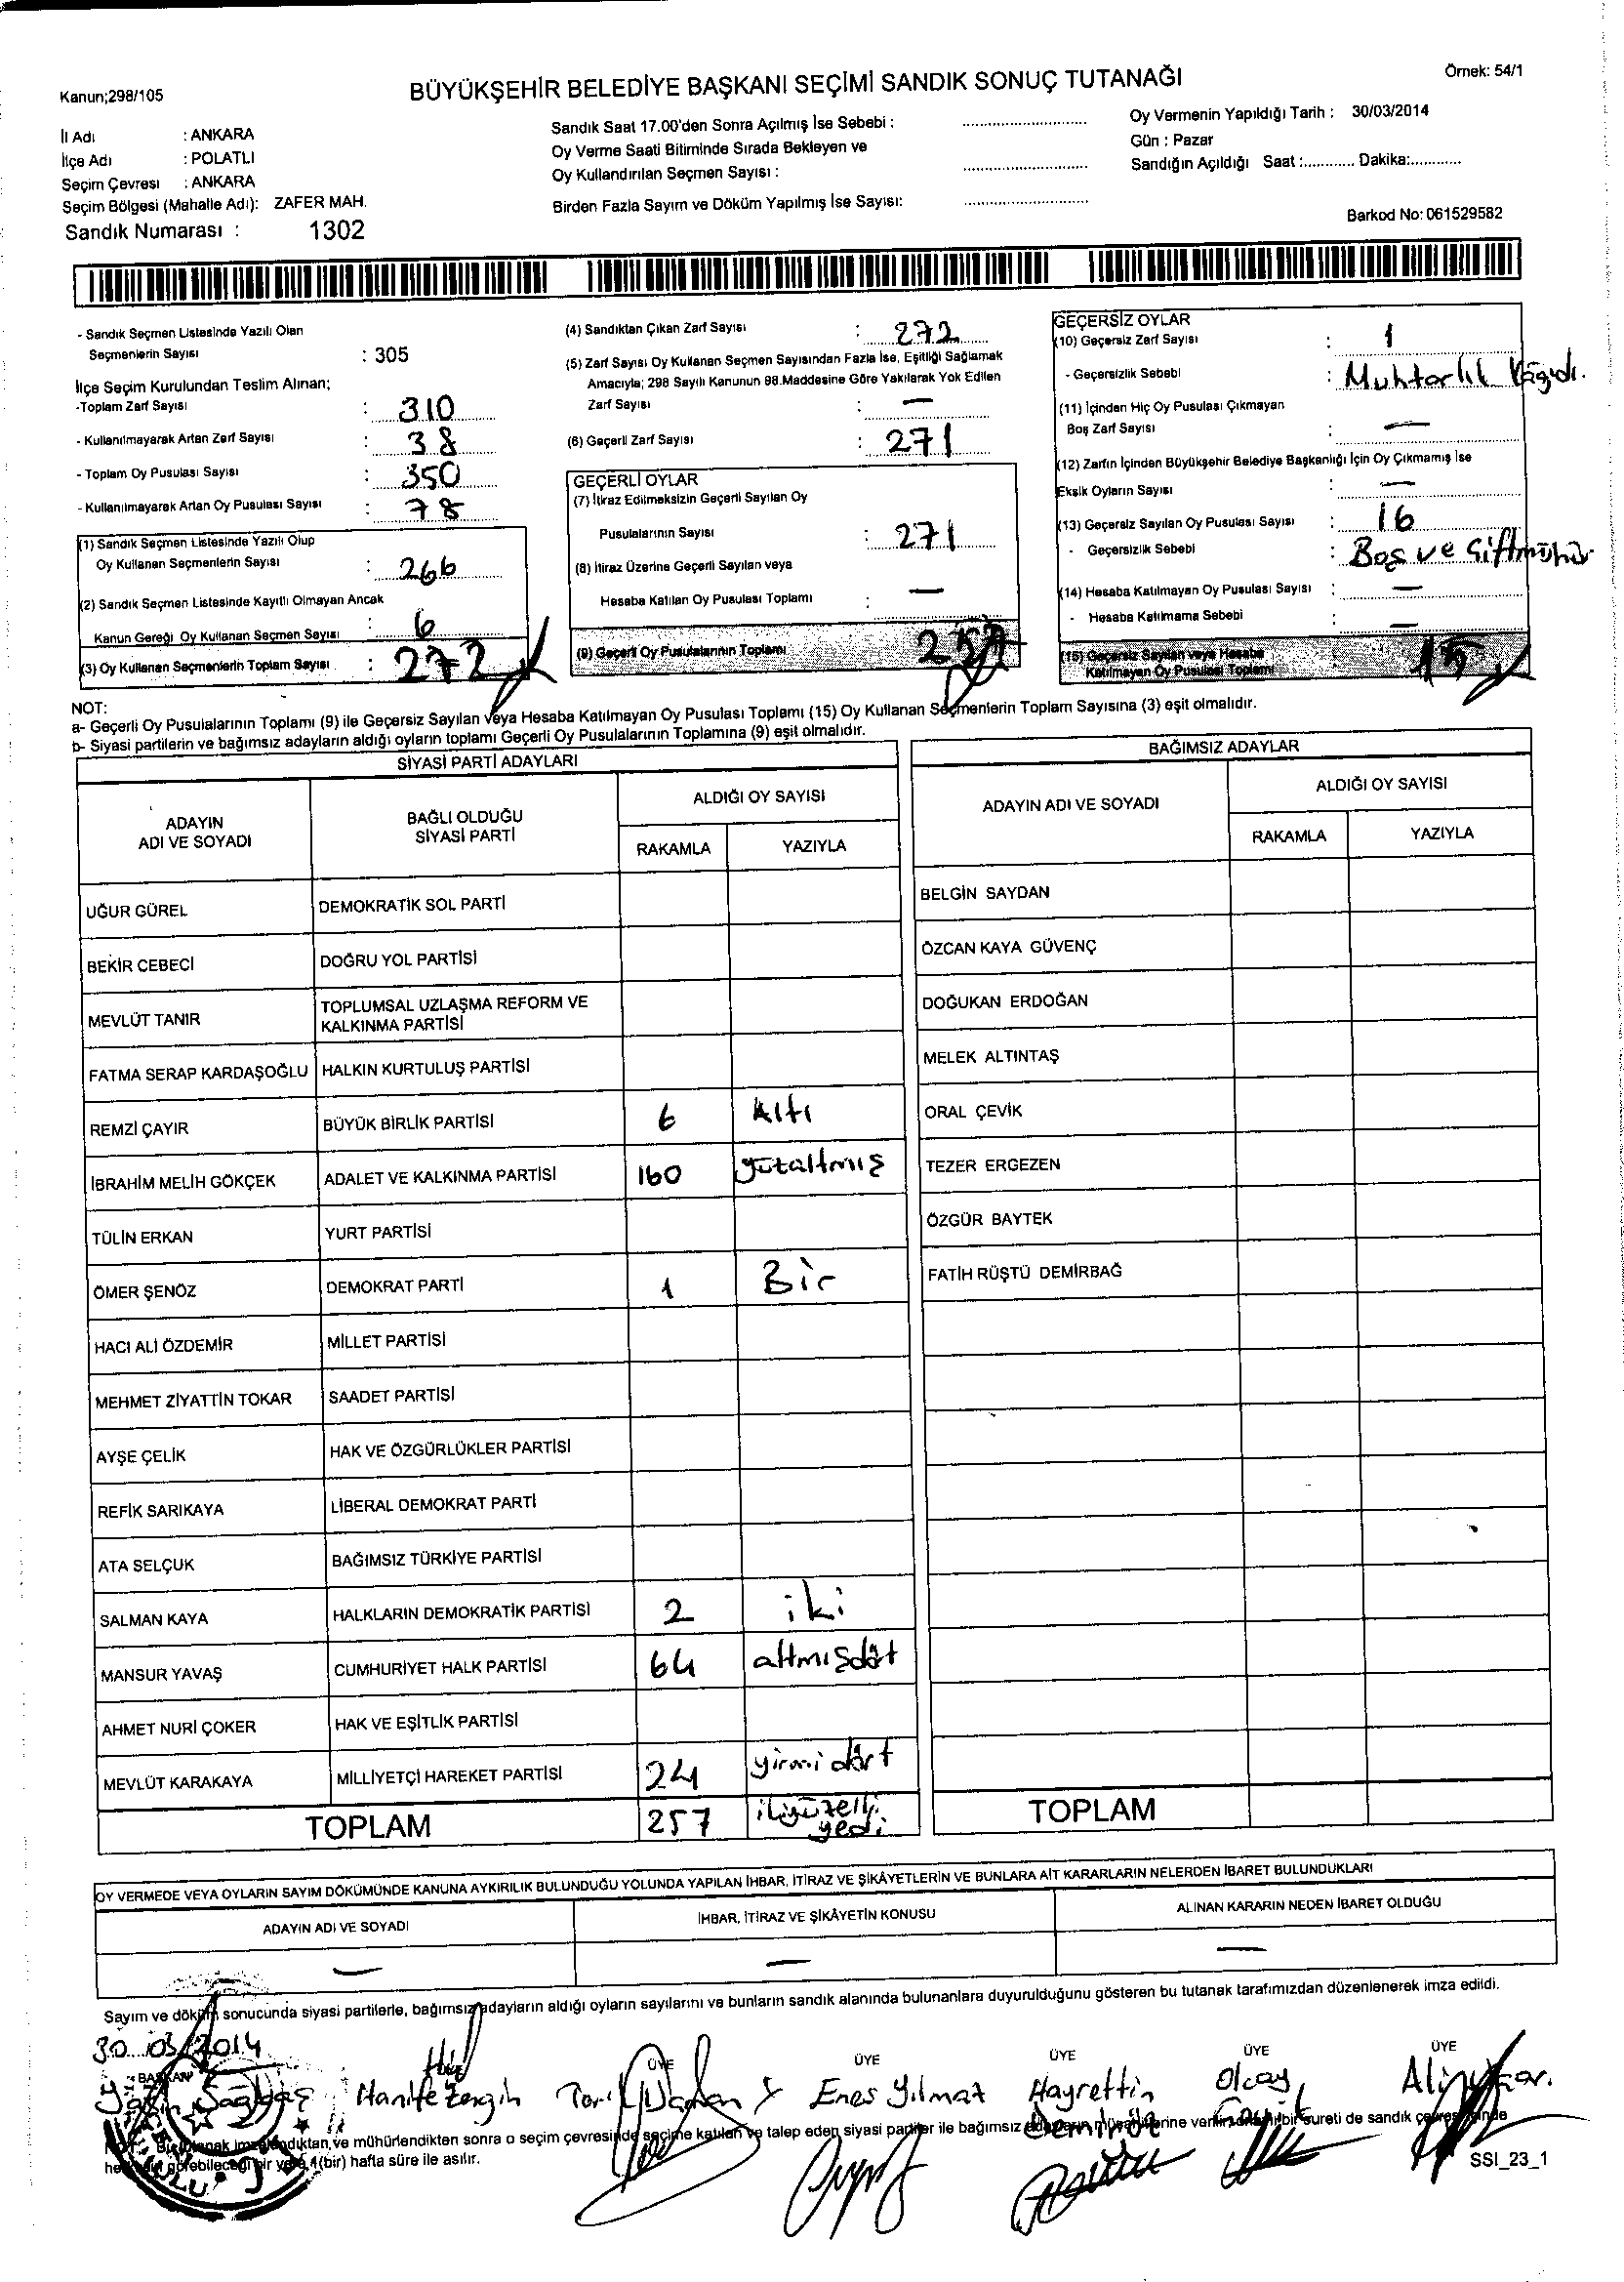 Kanun;298/105
BÜYÜKŞEHİR BELEDİYE BAŞKANI SEÇİMİ SANDIK SONUÇ TUTANAĞI
Örnek: 54/1
İl Adı : ANKARA
İlçe Adı : POLATLI
Seçim Çevresi : ANKARA
Seçim Bölgesi (Mahalle Adı): ZAFER MAH.
Sandık Numarası : 1302
Sandık Saat 17.00'den Sonra Açılmış İse Sebebi :
Oy Verme Saati Bitiminde Sırada Bekleyen ve
Oy Kullandırılan Seçmen Sayısı :
Birden Fazla Sayım ve Döküm Yapılmış İse Sayısı:
Oy Vermenin Yapıldığı Tarih : 30/03/2014
Gün : Pazar
Sandığın Açıldığı Saat :............ Dakika:............
Barkod No: 061529582
- Sandık Seçmen Listesinde Yazılı Olan
Seçmenlerin Sayısı : 305
İlçe Seçim Kurulundan Teslim Alınan;
-Toplam Zarf Sayısı : 310
- Kullanılmayarak Artan Zarf Sayısı : 38
- Toplam Oy Pusulası Sayısı : 350
- Kullanılmayarak Artan Oy Pusulası Sayısı : 78
(1) Sandık Seçmen Listesinde Yazılı Olup
Oy Kullanan Seçmenlerin Sayısı : 266
(2) Sandık Seçmen Listesinde Kayıtlı Olmayan Ancak
Kanun Gereği Oy Kullanan Seçmen Sayısı : 6
(3) Oy Kullanan Seçmenlerin Toplam Sayısı : 272
(4) Sandıktan Çıkan Zarf Sayısı : 272
(5) Zarf Sayısı Oy Kullanan Seçmen Sayısından Fazla İse, Eşitliği Sağlamak
Amacıyla; 298 Sayılı Kanunun 98.Maddesine Göre Yakılarak Yok Edilen
Zarf Sayısı : —
(6) Geçerli Zarf Sayısı : 271
GEÇERLİ OYLAR
(7) İtiraz Edilmeksizin Geçerli Sayılan Oy
Pusulalarının Sayısı : 271
(8) İtiraz Üzerine Geçerli Sayılan veya
Hesaba Katılan Oy Pusulası Toplamı : —
(9) Geçerli Oy Pusulalarının Toplamı
GEÇERSİZ OYLAR
(10) Geçersiz Zarf Sayısı : 1
- Geçersizlik Sebebi : Muhtarlık Kâğıdı.
(11) İçinden Hiç Oy Pusulası Çıkmayan
Boş Zarf Sayısı : —
(12) Zarfın İçinden Büyükşehir Belediye Başkanlığı İçin Oy Çıkmamış İse
Eksik Oyların Sayısı : —
(13) Geçersiz Sayılan Oy Pusulası Sayısı : 16
- Geçersizlik Sebebi : Boş ve Çiftmühür
(14) Hesaba Katılmayan Oy Pusulası Sayısı : —
- Hesaba Katılmama Sebebi : —
(15) Geçersiz Sayılan veya Hesaba
Katılmayan Oy Pusulası Toplamı 15
NOT:
a- Geçerli Oy Pusulalarının Toplamı (9) ile Geçersiz Sayılan veya Hesaba Katılmayan Oy Pusulası Toplamı (15) Oy Kullanan Seçmenlerin Toplam Sayısına (3) eşit olmalıdır.
b- Siyasi partilerin ve bağımsız adayların aldığı oyların toplamı Geçerli Oy Pusulalarının Toplamına (9) eşit olmalıdır.
SİYASİ PARTİ ADAYLARI
ADAYIN ADI VE SOYADI
BAĞLI OLDUĞU SİYASİ PARTİ
ALDIĞI OY SAYISI
RAKAMLA YAZIYLA
UĞUR GÜREL DEMOKRATİK SOL PARTİ
BEKİR CEBECİ DOĞRU YOL PARTİSİ
MEVLÜT TANIR TOPLUMSAL UZLAŞMA REFORM VE KALKINMA PARTİSİ
FATMA SERAP KARDAŞOĞLU HALKIN KURTULUŞ PARTİSİ
REMZİ ÇAYIR BÜYÜK BİRLİK PARTİSİ 6 Altı
İBRAHİM MELİH GÖKÇEK ADALET VE KALKINMA PARTİSİ 160 yüzaltmış
TÜLİN ERKAN YURT PARTİSİ
ÖMER ŞENÖZ DEMOKRAT PARTİ 1 Bir
HACI ALİ ÖZDEMİR MİLLET PARTİSİ
MEHMET ZİYATTİN TOKAR SAADET PARTİSİ
AYŞE ÇELİK HAK VE ÖZGÜRLÜKLER PARTİSİ
REFİK SARIKAYA LİBERAL DEMOKRAT PARTİ
ATA SELÇUK BAĞIMSIZ TÜRKİYE PARTİSİ
SALMAN KAYA HALKLARIN DEMOKRATİK PARTİSİ 2 iki
MANSUR YAVAŞ CUMHURİYET HALK PARTİSİ 64 altmışdört
AHMET NURİ ÇOKER HAK VE EŞİTLİK PARTİSİ
MEVLÜT KARAKAYA MİLLİYETÇİ HAREKET PARTİSİ 24 yirmi dört
TOPLAM 257 ikiyüzelli yedi
BAĞIMSIZ ADAYLAR
ADAYIN ADI VE SOYADI
ALDIĞI OY SAYISI
RAKAMLA YAZIYLA
BELGİN SAYDAN
ÖZCAN KAYA GÜVENÇ
DOĞUKAN ERDOĞAN
MELEK ALTINTAŞ
ORAL ÇEVİK
TEZER ERGEZEN
ÖZGÜR BAYTEK
FATİH RÜŞTÜ DEMİRBAĞ
TOPLAM
OY VERMEDE VEYA OYLARIN SAYIM DÖKÜMÜNDE KANUNA AYKIRILIK BULUNDUĞU YOLUNDA YAPILAN İHBAR, İTİRAZ VE ŞİKÂYETLERİN VE BUNLARA AİT KARARLARIN NELERDEN İBARET BULUNDUKLARI
ADAYIN ADI VE SOYADI İHBAR, İTİRAZ VE ŞİKÂYETİN KONUSU ALINAN KARARIN NEDEN İBARET OLDUĞU
— — —
Sayım ve döküm sonucunda siyasi partilerle, bağımsız adayların aldığı oyların sayılarını ve bunların sandık alanında bulunanlara duyurulduğunu gösteren bu tutanak tarafımızdan düzenlenerek imza edildi.
30 03/2014
BAŞKAN ÜYE ÜYE ÜYE ÜYE ÜYE
Hanife Zengin Enes Yılmaz Hayrettin Demiröz Olcay
imzalandıktan ve mühürlendikten sonra o seçim çevresinde seçime katılan ve talep eden siyasi partiler ile bağımsız adayların müşahitlerine verilir. bir sureti de sandık çevresinde
herkesin görebileceği bir yere 1(bir) hafta süre ile asılır.
SSI_23_1